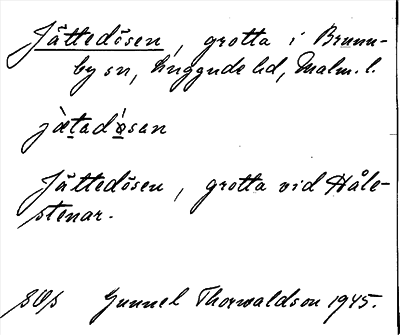 Jättedösen, grotta i Brunn-
by sn, Luggude hd, Malm. l.
jæ̀tadø̀san
Jättedösen, grotta vid Håle-
stenar.
Gunnel Thorwaldson 1945.